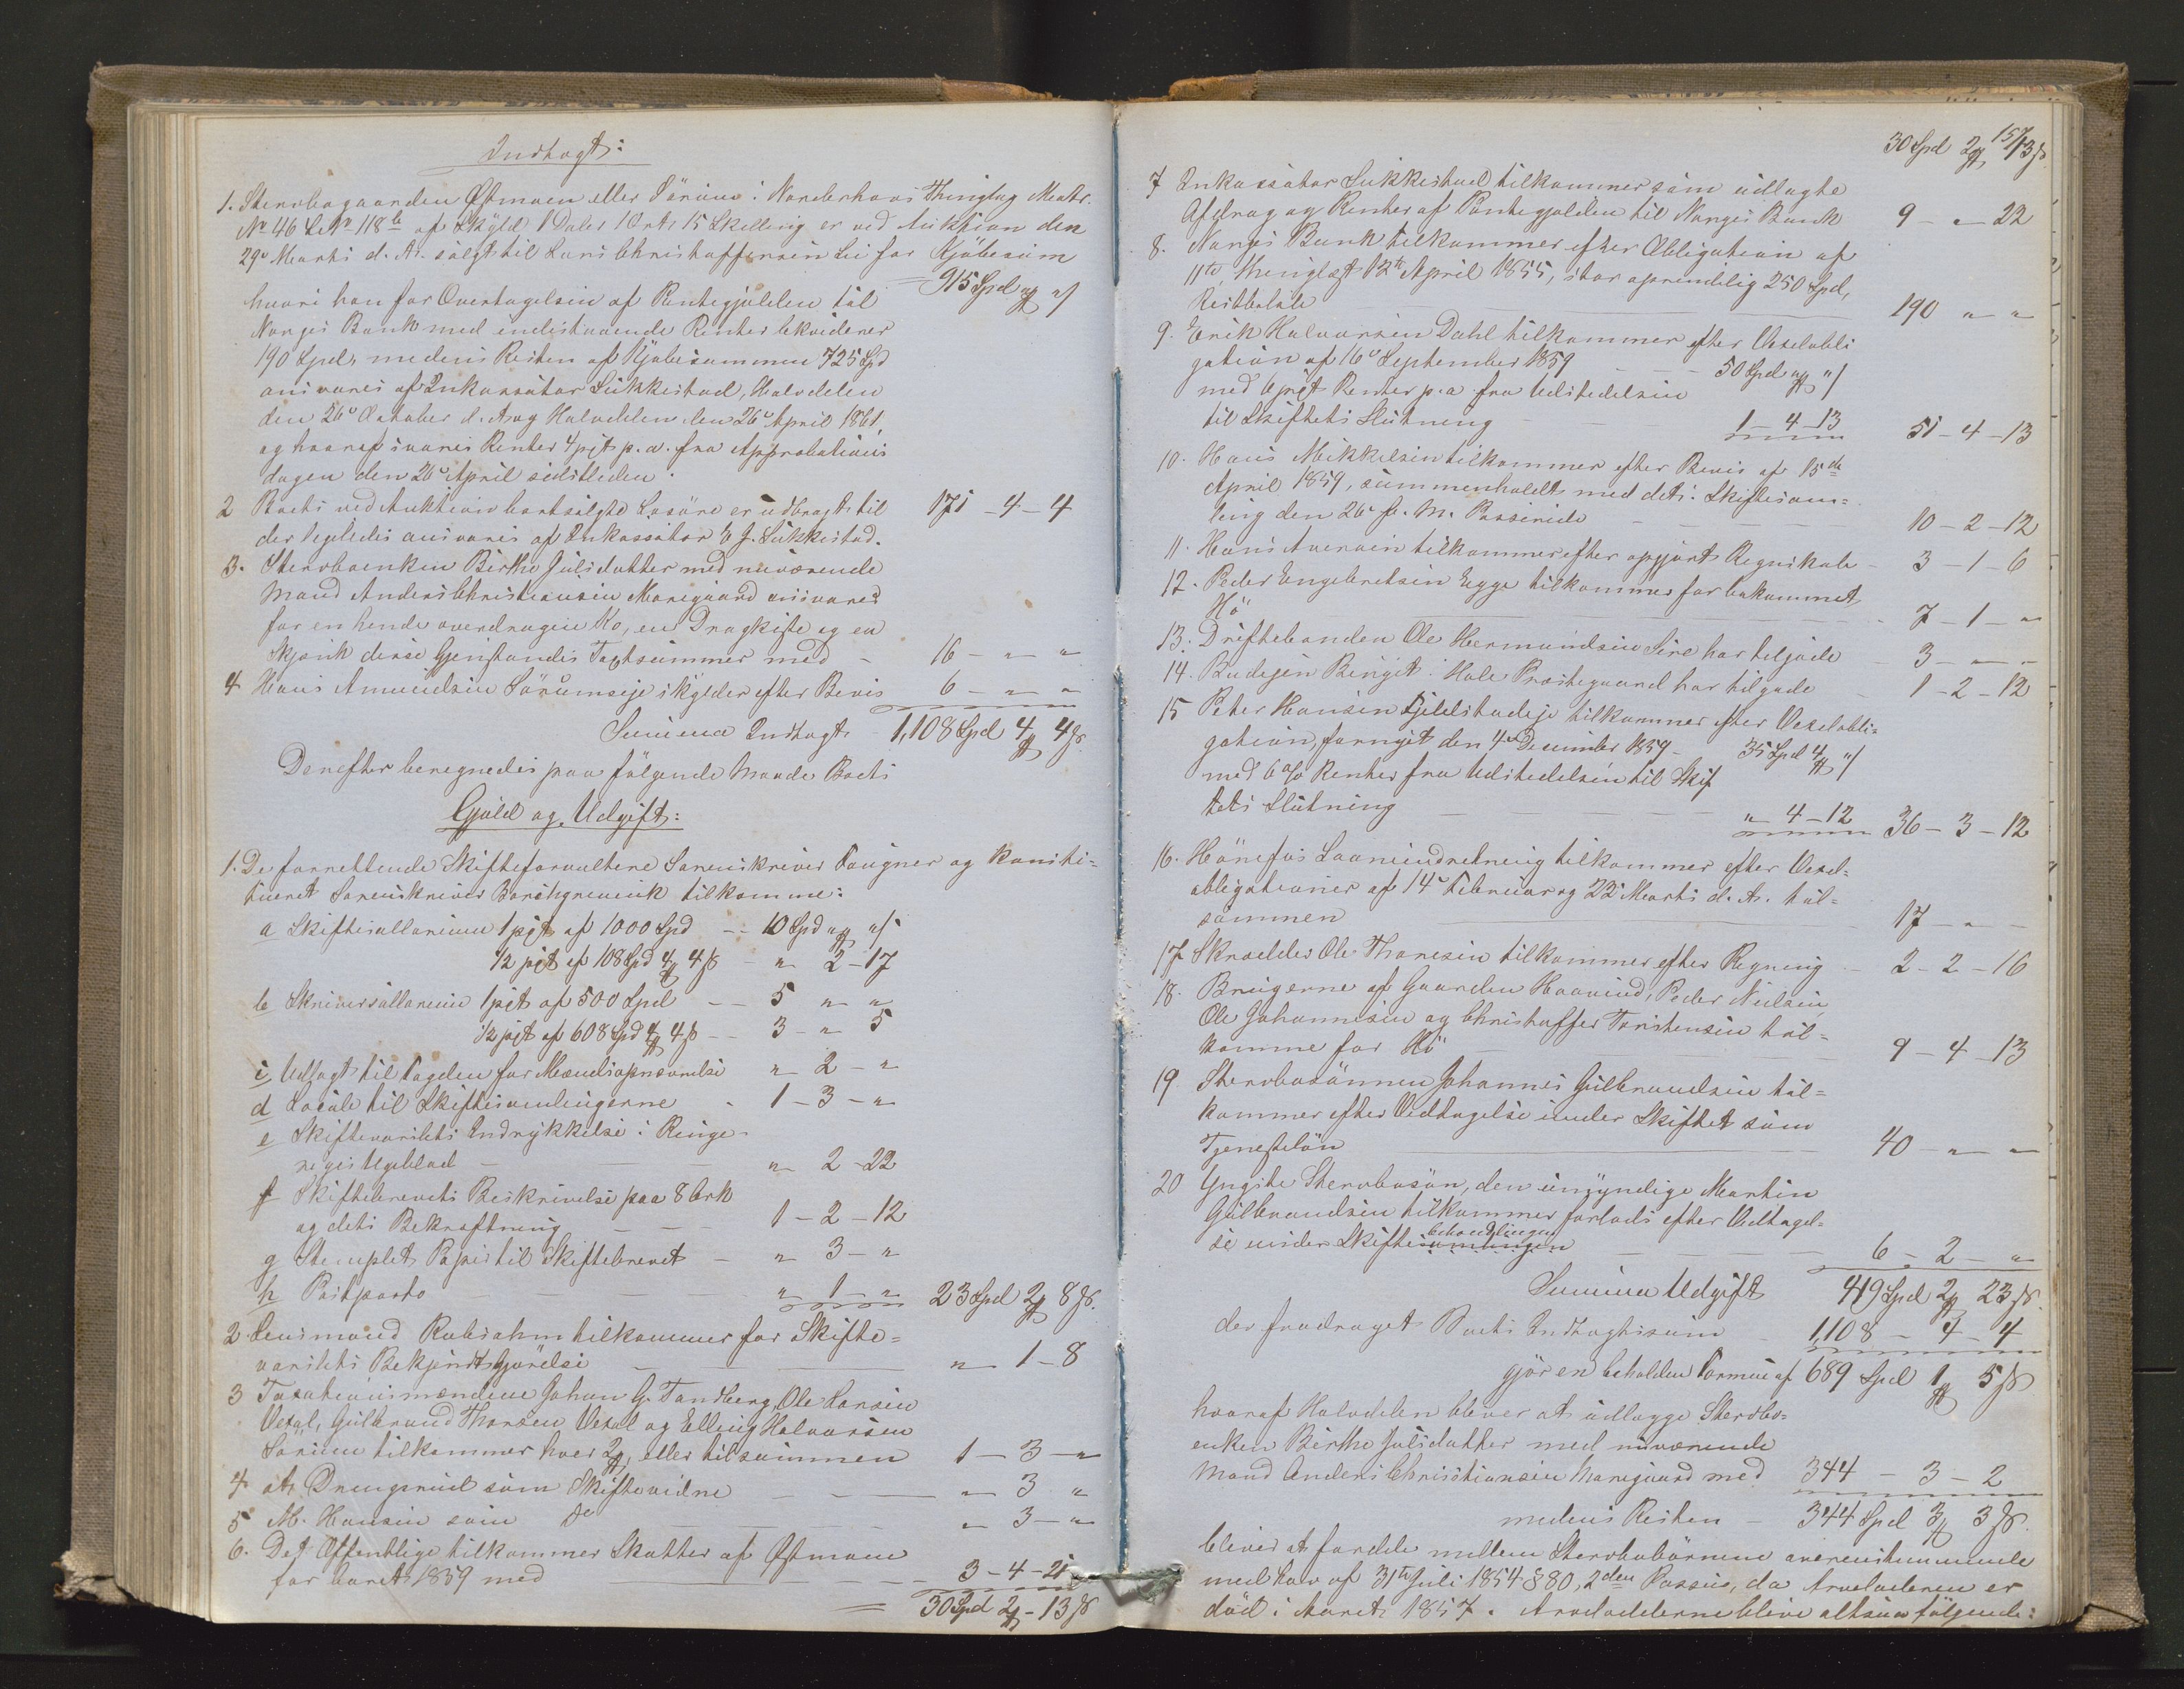 Indtægt:
1. Sterbogaarden Østmoen eller Sørum i Norderhovs Thinglag Matr.
No 46 L.No 118b af Skyld 1 Daler 1 Ort 15 Skilling er ved Auktion den
29de Marts d. A. solgt til Lars Christoffersen Lie for Kjøbesum
hvori han for Overtagelsen af Pantegjælden til 915 Spd „ „
Norges Bank med indestaaende Renter bekviderer
190 Spd, medens Resten af Kjøbesummen 725 Spd
ansvares af Inkassator Lükkestad, Halvdelen
den 26de October d. A. og Halvdelen den 26de April 1861,
og hvoraf svares Renter 4 pCt p. a. fra Approbations
dagen den 26de April sidstleden.
2 Boets ved Auktion bortsolgte Løsøre er udbragt til 171 - 4 - 4
der ligeledes ansvares af Inkassator Lükkestad.
3. Sterboenken Birthe Julsdatter med nuværende
Mand Anders Christiansen Moregaard ansvares
for en hende overdragen Ko, en Dragkiste og en
Skjænk disse Gjenstandes Taxtsummer med - 16 - „ - „
4 Hans Amundsen Sørumseje skylder efter Bevis 6 - „ - „
Summa Indtægt 1,108 Spd 4 4 s.
Derefter beregnedes paa følgende Maade Boets
Gjæld og Udgift:
1. De forrettende Skifteforvaltere Sorenskriver Fougner og konsti-
tueret Sorenskriver Borchgrevink tilkomme:
a Skiftesallarium 1 pCt af 1000 Spd - - 10 Spd „ „
1/2 pCt af 108 Spd 4 4 s - „ 2 - 17
b Skriversallarium 1 pCt af 500 Spd - - 5 „ - „
1/2 pCt af 608 Spd 4 4 s - - 3 - „ 5
c Udlagt til Fogden for Mændsopnævnelse „ 2 - „
d Locale til Skiftesamlingerne - 1 - 3 - „
e Skiftevarslets Indrykkelse i Ringe-
riges Ugeblad - „ 2 - 22
f Skiftebrevets Beskrivelse paa 8 Ark
og dets Bekræftning - - 1 - 2 - 12
g Stemplet Papir til Skiftebrevet - „ 3 - „
h Postporto - „ 1 - „ 23 Spd 2 8 s.
2. Lensmand Rabsahm tilkommer for Skifte-
varslets Bekjendtgjørelse - „ 1 - 8
3 Taxationsmændene Johan G. Tandberg, Ole Larsen
Vesal, Gulbrand Thorsen Vesal og Elling Halvorsen
Sørum tilkommer hver 2, eller tilsammen 1 - 3 - „
4 A. Drengsrud som Skiftevidne - - „ 3 „
5 M. Hansen som Do „ - 3 - „
6. Det Offentlige tilkommer Skatter af Østmoen
for Aaret 1859 med - 3 - 4 - 21
30 Spd 2 - 13 s
157
30 Spd 2 13 s.
7 Inkassator Lükkestad tilkommer som udlagte
Afdrag og Renter af Pantegjælden til Norges Bank 9 - „ - 22
8. Norges Bank tilkommer efter Obligation af
11te, thinglæst 12te April 1855, stor oprindelig 250 Spd,
Restbeløb 190 „ „
9. Erik Halvorsen Dahl tilkommer efter Vexelobli
gation af 16de September 1859 - - 50 Spd „ „
med 6 pCt Renter p. a. fra Udstedelsen
til Skiftets Slutning - 1 - 4 - 13 51 - 4 - 13
10. Hans Mikkelsen tilkommer efter Bevis af 15de
April 1859, sammenholdt med det i Skiftesam-
ling den 26de f. M. Passerede - 10 - 2 - 12
11. Hans Aversen tilkommer efter opgjort Regnskab - 3 - 1 - 6
12. Peder Engebretsen Egge tilkommer for bekommet
Hø - 7 - 1 - „
13. Driftebonden Ole Hermundsen Sire har tilgode - 3 - „ -
14. Budejen Bergit i Hole Præstegaard har tilgode - 1 - 2 - 12
15 Peter Hansen Fjeldstadeje tilkommer efter Vexelobli-
gation, fornyet den 4de December 1859 - 35 Spd 4 „
med 6 % Renter fra Udstedelsen til Skif
tets Slutning - „ 4 - 12 36 - 3 - 12
16. Hønefos Laaneindretning tilkommer efter Vexel-
obligationer af 14de Februar og 22de Marts d. A. til-
sammen 17 - „ -
17 Skrædder Ole Thoresen tilkommer efter Regning - 2 - 2 - 16
18. Brugerne af Gaarden Haavind, Peder Nielsen
Ole Johannesen og Christoffer Torstensen til-
komme for Hø - 9 - 4 - 13
19 Sterbosønnen Johannes Gulbrandsen til-
kommer efter Vedtagelse under Skiftet som
Tjenesteløn 40 - „ - „
20 Yngste Sterbosøn, den umyndige Martin
Gulbrandsen tilkommer forlods efter Vedtagel-
se under Skiftesamlingen behandlingen - 6 - 2 - „
Summa Udgift 419 Spd 2 23 s.
der fradraget Boets Indtægtssum - 1,108 - 4 - 4
gjør en beholden Formue af 689 Spd 1 5 s
hvoraf Halvdelen bliver at udlægge Sterbo-
enken Birthe Julsdatter med nuværende
Mand Anders Christiansen Moregaard med 344 - 3 - 2
medens Resten - 344 Spd 3 3 s.
bliver at fordele mellem Sterbobørnene overensstemmende
med Lov af 31te Juli 1854 § 80, 2den Passus, da Arveladeren er
død i Aaret 1857. Arvelodderne blive altsaa følgende: